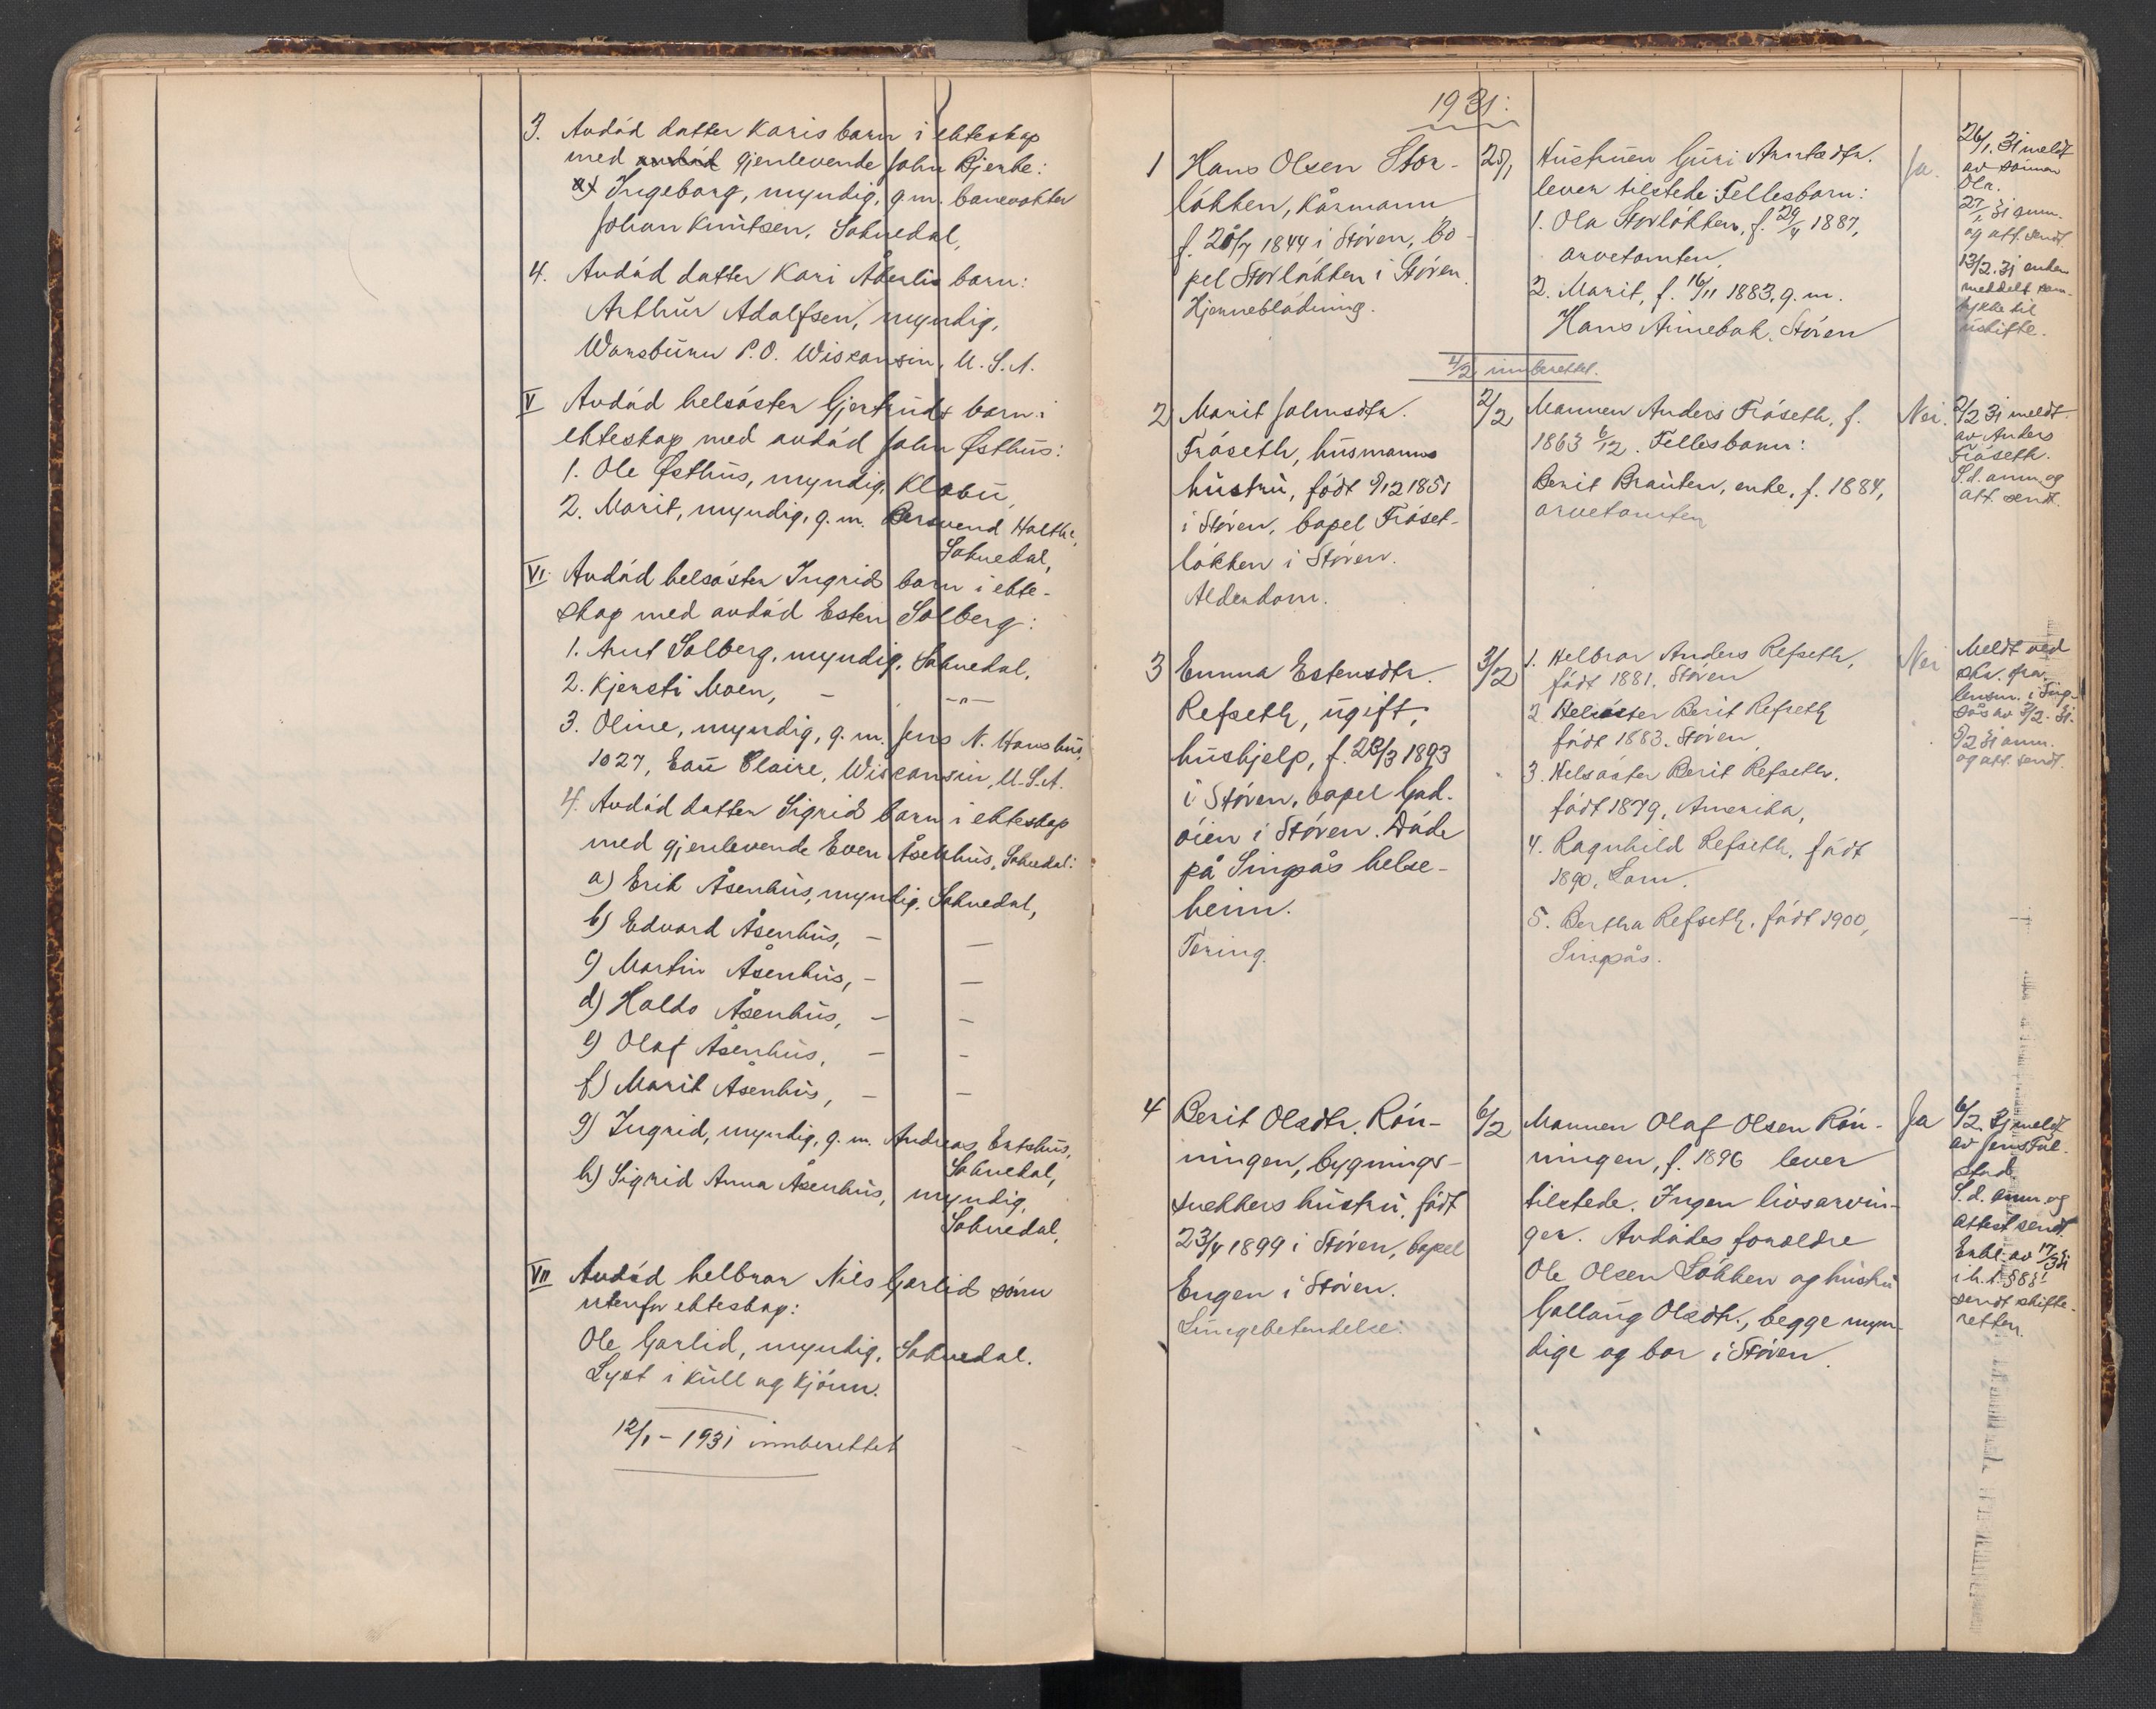 3. Avdød datter Karis barn i ekteskap
med avdød gjenlevende John Bjerke:
a) Ingeborg, myndig, g.m. banevokter
Johan Knutsen, Soknedal,
4. Avdød datter Kari Åberlis barn:
Arthur Adolfsen, myndig,
P.O. Wisconsin, U.S.A.
V Avdød helsøster Gjertruds barn i
ekteskap med avdød John Østhus:
1. Ole Østhus, myndig, Klæbu,
2. Marit, myndig, g.m. Bersvend Holthe,
Soknedal,
VI. Avdød helsøster Ingrids barn i ekte-
skap med avdød Esten Solberg:
1. Arnt Solberg, myndig, Soknedal,
2. Kjersti Moen, – –"–
3. Oline, myndig, g.m. Jens N.
1027, Eau Claire, Wisconsin, U.S.A.
4. Avdød datter Sigrids barn i ekteskap
med gjenlevende Even Åsenhus, Soknedal:
a) Erik Åsenhus, myndig, Soknedal,
b) Edvard Åsenhus, – –
c) Martin Åsenhus, – –
d) Haldo Åsenhus, – –
e) Olaf Åsenhus, – –
f) Marit Åsenhus, – –
g) Ingrid, myndig, g.m. Andreas
Soknedal,
h) Sigrid Anna Åsenhus, myndig,
Soknedal,
VII Avdød helbror Nils Garlids sønn
utenfor ekteskap:
Ole Garlid, myndig, Soknedal.
Lyst i kull og kjønn.
12/1 – 1931 innberettet
1931:
1 Hans Olsen Stor-
løkken, kårmann
f. 1844 i Støren, bo-
pel Storløkken i Støren.
Hjerneblødning.
Hustruen Guri Arntsdtr.
lever tilstede. Fellesbarn:
1. Ola Storløkken, f. 29/4 1887,
arvetomten
2. Marit, f. 16/11 1883, g.m.
Hans Støren
Ja.
26/1.31 meldt
av sønnen
Ola.
27/1 31 anm.
og att. sendt.
13/2.31 enken
meddelt sam-
tykke til
uskifte.
4/2 innberettet.
2 Marit Johnsdtr.
Frøseth, husmanns
hustru, født 9/12 1851
i Støren, bopel Frøset-
løkken i Støren.
Alderdom.
2/2
Mannen Anders Frøseth, f.
1863 6/12. Fellesbarn:
Berit Brauten, enke, f. 1884,
arvetomten
Nei.
2/2 31 meldt
av Anders
Frøseth.
S.d. anm. og
att. sendt.
3 Emma Estensdtr.
Refseth, ugift,
hushjelp, f. 23/3 1893
i Støren, bopel
øien i Støren. Døde
på Singsås helse-
heim.
Tæring.
3/2
1. Helbror Anders Refseth,
født 1881, Støren
2. Helsøster Berit Refseth
født 1883, Støren
3. Helsøster Berit Refseth,
født 1879, Amerika,
4. Ragnhild Refseth, født
1890, Lom.
5. Bertha Refseth, født 1900,
Singsås.
Nei
Meldt ved
skr. fra
lensm. i Sing-
sås av 3/2.31.
9/2 31 anm.
og att. sendt.
4 Berit Olsdtr. Røn-
ningen, bygnings-
snekkers hustru, født
23/4 1899 i Støren, bopel
Engen i Støren.
Lungebetendelse.
6/2
Mannen Olaf Olsen Røn-
ningen, f. 1896 lever
tilstede. Ingen livsarvin-
ger. Avdødes foreldre
Ole Olsen Løkken og hustru
Gollaug Olsdtr., begge myn-
dige og bor i Støren.
Ja
6/2.31 meldt
av Jens
stad.
S.d. anm. og
attest sendt.
Erkl. av 17/3 31
i h.t. § 83
sendt skifte-
retten.